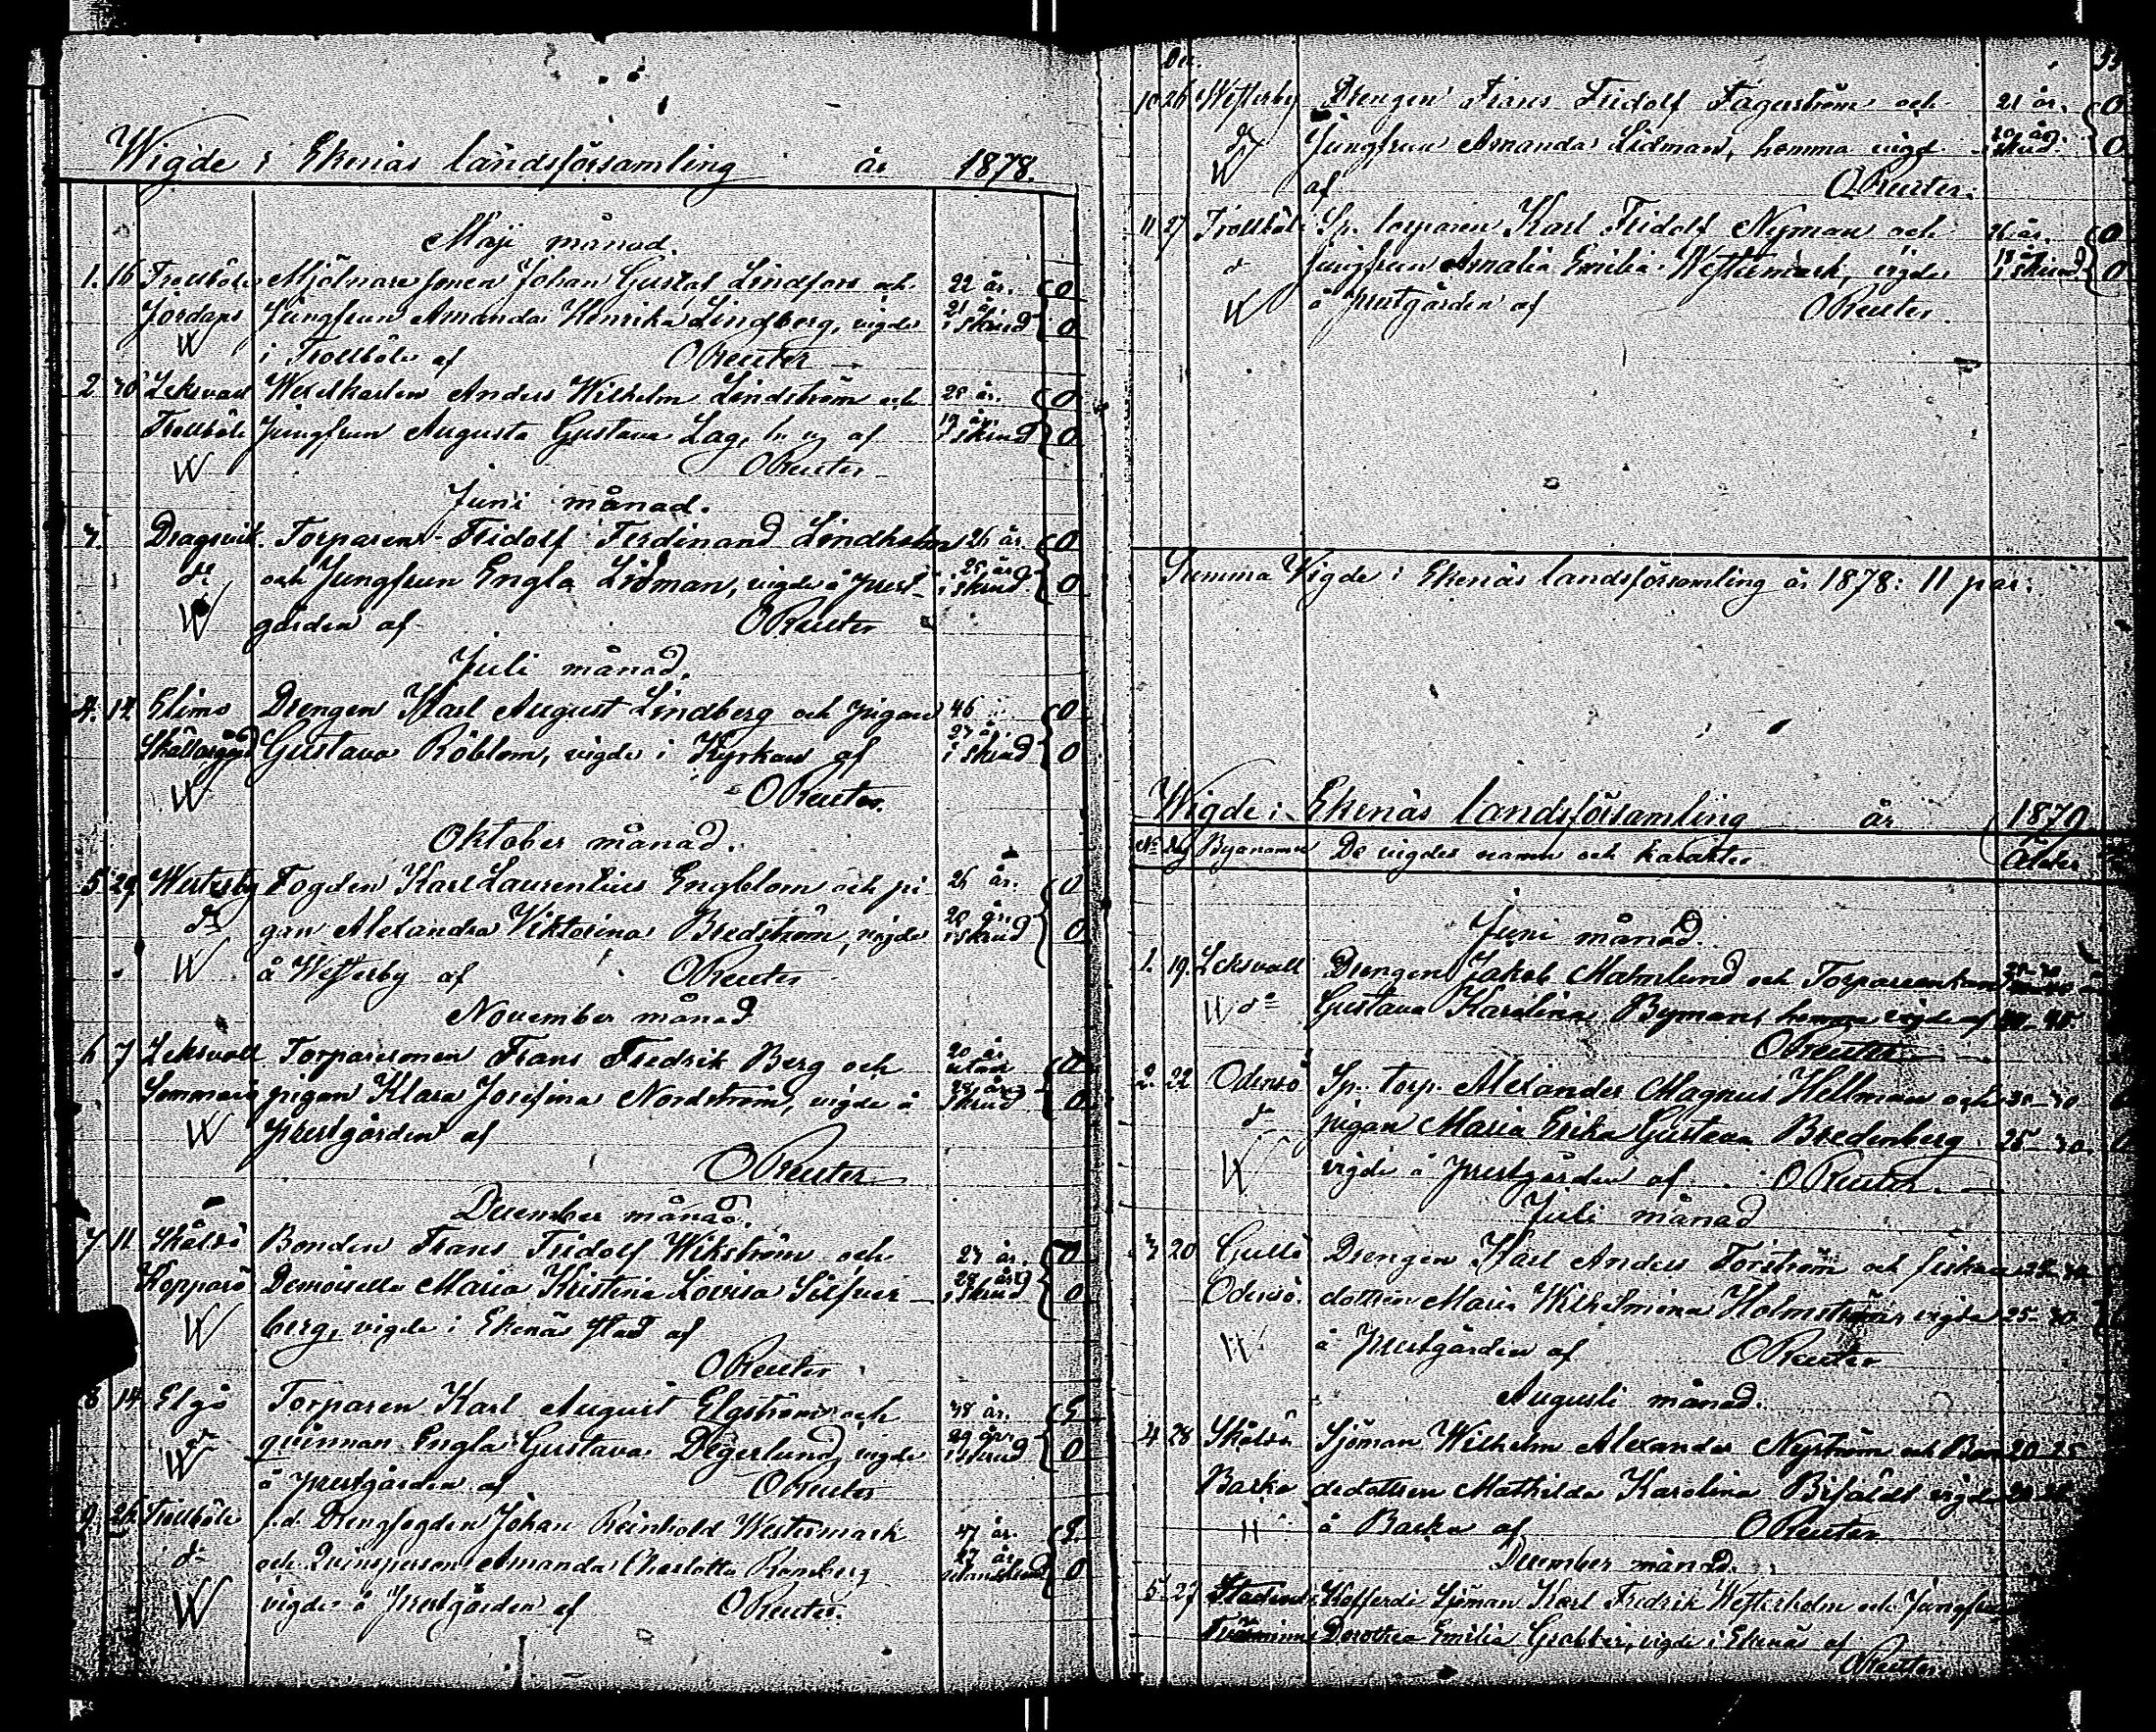 Wigde i Ekenäs landsförsamling år 1878.
Maji månad.
1. 16 Trollböle Mjölnaresonen Johan Gustaf Lindfors och 22 år. 0
Jordans Jungfrun Amanda Henrika Lindberg, vigde 21 år i skrud 0
W i Trollböle af OReuter
2 30 Leksvall Werelkarlen Anders Wilhelm Lindström och 28 år. 0
Trollböle Jungfrun Augusta Gustava Lag, af 19 år i skrud 0
W OReuter
Juni månad.
Dragsvik. Torparen Fridolf Ferdinand Lindholm 26 år. 0
do och Jungfrun Engla Lidman, vigde å prest- 25 år i skrud 0
W gården af OReuter
Juli månad.
4. 12 Elimo Drengen Karl August Lindberg och pigan 46 0
Skåldargärd Gustava Röblom, vigde i Kyrkan af 27 år i skrud 0
W OReuter.
Oktober månad.
5 29 Westerby Fogden Karl Laurentius Engblom och pi 26 år. 0
do gan Alexandra Viktorina Bredström, vigde 20 år. i skrud 0
W å Westerby af OReuter
November månad
6 7 Leksvall Torparesonen Frans Fredrik Berg och 20 år utan 0
Sommarö pigan Klara Josefina Nordström, vigde å 28 år skrud 0
W prestgården af
OReuter
December månad.
7 11. Skåldö Bonden Frans Fridolf Wikström och 27 år. 0
Kopparö Demoiselle Maria Kristina Lovisa Silfver 28 år i skrud 0
W berg, vigde i Ekenäs stad af
OReuter
8 14. Elgö Torparen Karl August Elgström och 48 år. E
do qvinnan Engla Gustava Degerlund, vigde 29 år i skrud 0
W å prestgården af OReuter
9. 26. Trollböle f.d. Drengfogden Johan Reinhold Westermark 47 år. E
do och Qvinsperson Amanda Charlotta Romberg 27 år utan skrud 0
W vigde å Prestgården af OReuter.
Dec.
10 26 Westerby Drengen Frans Fridolf Fagerström och 21 år. 0
do Jungfrun Amanda Lidman, hemma vigd 20 år. i skrud 0
W af OReuter.
11 27 Trollböle Sp. torparen Karl Fridolf Nyman och 26 år. 0
do Jungfrun Amalia Emilia Westermark, vigde 19 år i skrud 0
W å Prestgården af OReuter.
Summa Vigde i Ekenäs landsförsamling år 1878: 11 par.
Wigde i Ekenäs landsförsamling år 1879
No Dag Byanamn De vigdes namn och karakter Ålder
Juni månad.
1. 19. Leksvall Drengen Jakob Malmlund och Torpareenkan
W do Gustava Karolina Byman, hemma vigde af 40-45
OReuter
2. 22 Odensö Sp. torp. Alexander Magnus Hellman och
do pigan Maria Erika Gustava Bredenberg 25-30.
W vigde å prestgården af OReuter.
Juli månad
3 20 Gullö Drengen Karl Anders Förström och fiskare
Odensö dottren Maria Wilhelmina Holmström, vigde 25-30
W å Prestgården af OReuter
Augusti månad.
4 28 Skåldö Sjöman Wilhelm Alexander Nyström och Bon 20-25
Barkö dedottren Mathilda Karolina vigde
å Barkö af OReuter
December månad.
5 27 Kofferdi Sjöman Karl Fredrik Westerholm och Jungfrun
Tvärminne Dorothea Emilia vigde i Ekenäs af
OReuter.